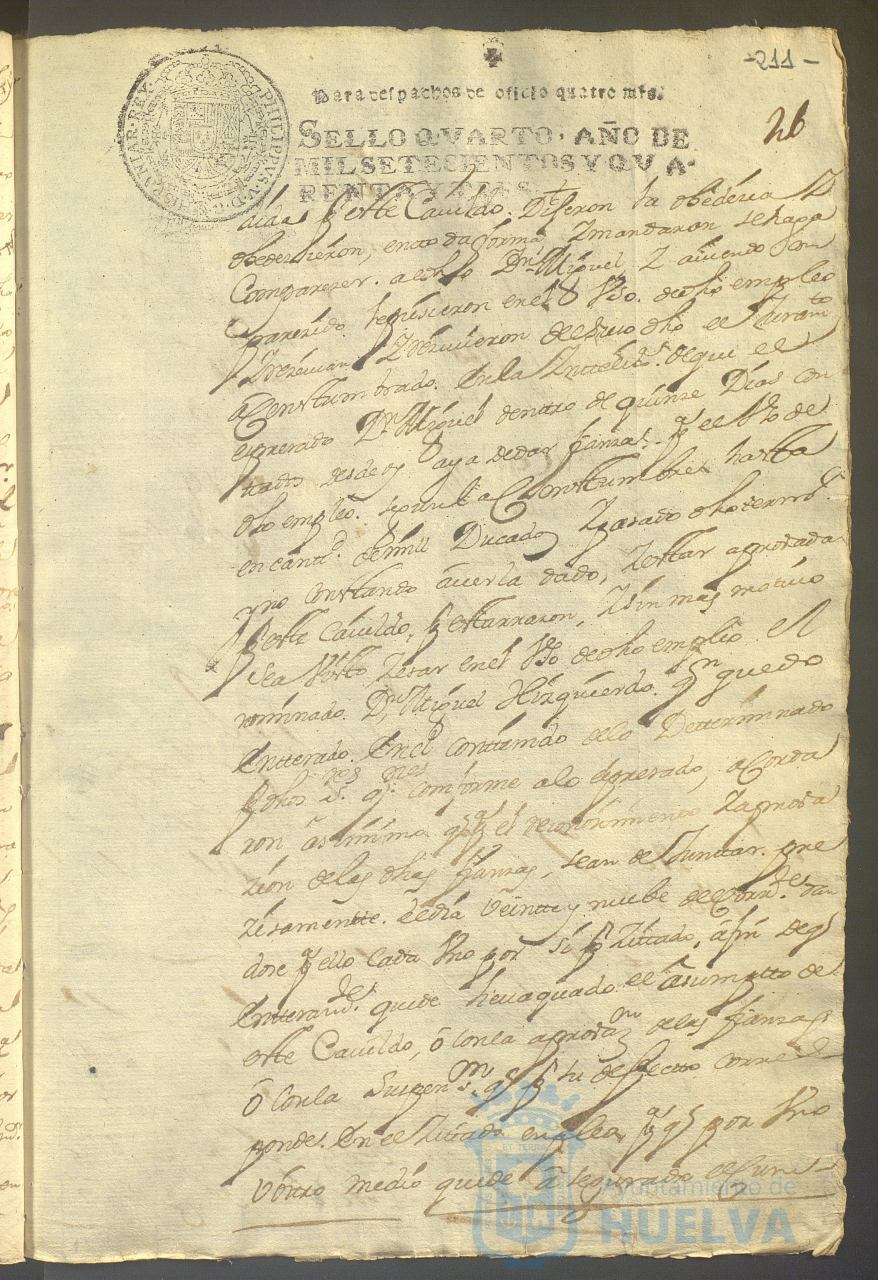 -211-
26
PHILIPPVS·V·D·G· HISPANIAR·REX·
Para despachos de oficio quatro mrs.
SELLO QVARTO, AÑO DE
MIL SETECIENTOS Y QVA-
RENTA Y
este Cavildo. Dijeron la obedecia Z
obedecieron, en toda forma, Z mandaron se haga
Comparezer. a este Dn. Miguel Z aviendo com
parezido le pusieron en el Vso. de dho empleo
Z rezivieron del suso dho el Juramto
aConstumbrado. En la Intteligª. de que el
expresado Dn. Miguel dentro de quinze Dias con
tados desde oy aya de dar fianzas pª el Vso de
dho empleo. segun la Constumbre hasta
en cantd. de mill Ducados Z pasado dho termº
y no constando averla dado, Z estar aprovada
por este Cavildo, Z sin mas motivo
sea visto Zesar en el Vso de dho empleo. El
nominado. Dn. Miguel Hizquierdo. qn quedo
Entterado. En el conttenido de lo Determinado
dhos Sres. conforme a lo expresado, acorda
ron asimismo que pª el reconozimiento Z aprova
zion de las dhas fianzas, sean de Junttar. pre
zisamentte. el dia veintte y nuebe de Corrte. dan
dose pr ello cada Vno por sí pr Zittado, a fin de qe
quede hevaquado el asumptto de
este Cavildo, ó con la aprovazn de las fianzas
ó con la Suspensn. qe pr su defecto corres
ponde. En el Zittado empleo, pª qe por Vno
V otro medio quede asegurado
Ayuntamiento de
HUELVA